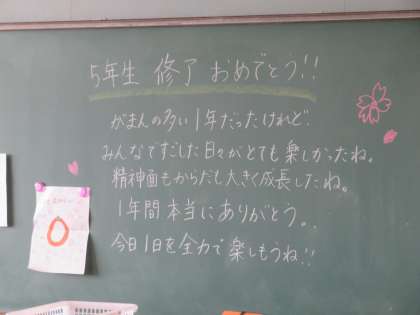 5年生 修了 おめでとう!!
がまんの多い1年だったけれど
みんなですごした日々がとても楽しかったね。
精神面もからだも大きく成長したね。
1年間本当にありがとう。
今日1日を全力で楽しもうね!!